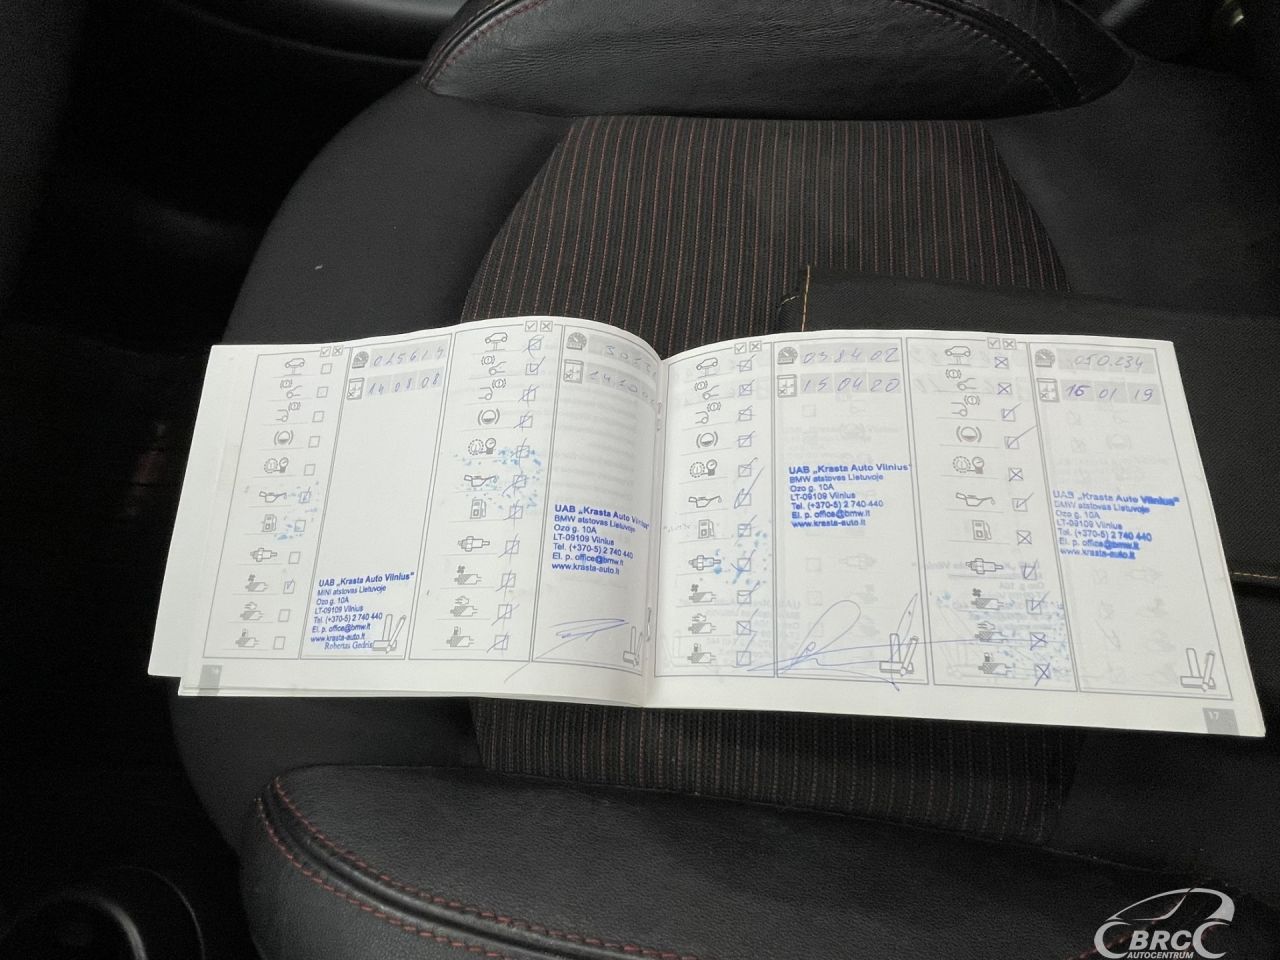 025614
14 08 08
UAB „Krasta Auto Vilnius“
MINI atstovas Lietuvoje
Ozo g. 10A
LT-09109 Vilnius
Tel. (+370-5) 2 740 440
El. p. office@bmw.lt
www.krasta-auto.lt
Robertas Gedris
UAB „Krasta Auto Vilnius“
BMW atstovas Lietuvoje
Ozo g. 10A
LT-09109 Vilnius
Tel. (+370-5) 2 740 440
El. p. office@bmw.lt
www.krasta-auto.lt
038402
15 04 20
UAB „Krasta Auto Vilnius“
BMW atstovas Lietuvoje
Ozo g. 10A
LT-09109 Vilnius
Tel. (+370-5) 2 740 440
El. p. office@bmw.lt
www.krasta-auto.lt
050234
16 01 19
UAB „Krasta Auto Vilnius“
BMW atstovas Lietuvoje
Ozo g. 10A
LT-09109 Vilnius
Tel. (+370-5) 2 740 440
El. p. office@bmw.lt
www.krasta-auto.lt
17
BRC
AUTOCENTRUM